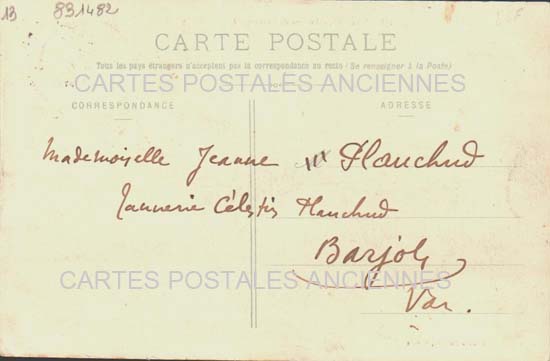 13 891482
CARTE POSTALE
Tous les pays étrangers n'acceptent pas la correspondance au recto (Se renseigner à la Poste)
CARTES POSTALES ANCIENNES
CORRESPONDANCE ADRESSE
Mademoiselle Jeanne Planchud
Tannerie Célestin Planchud
Barjols
CARTES POSTALES ANCIENNES
Var.